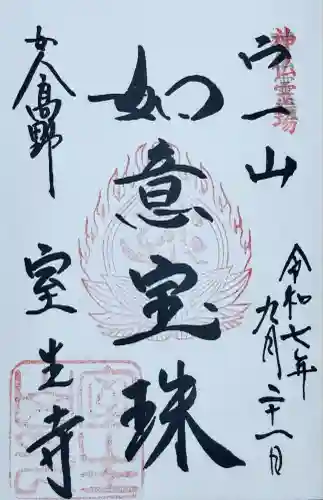 神仏霊場
宀一山
令和七年
九月二十一日
如意宝珠
女人高野
室生寺